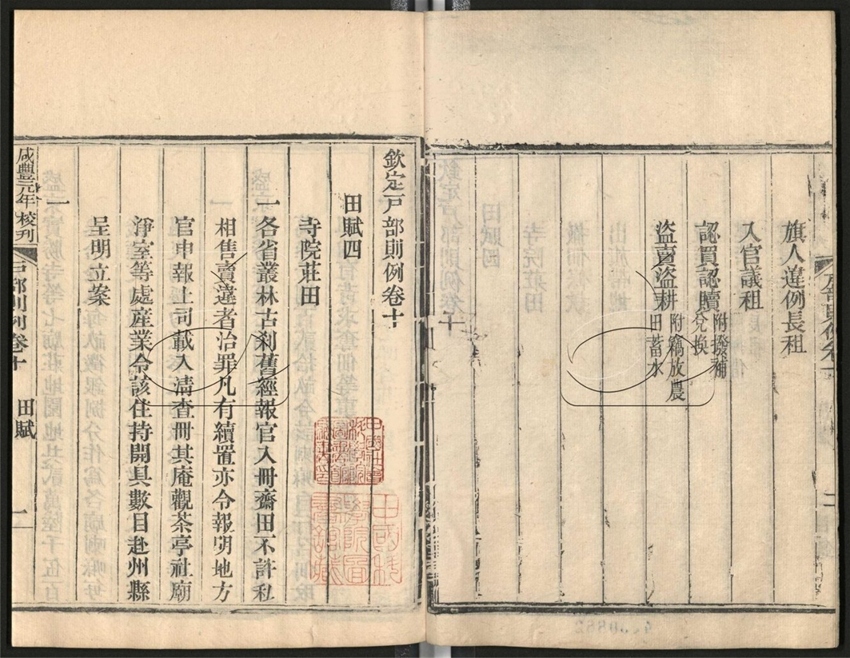 旗人違例長租
入官議租
認買認贖附撥補兌換
盜賣盜耕附竊放農田蓄水
欽定戶部則例卷十
田賦四
寺院莊田
一各省叢林古刹舊經報官入冊齋田不許私
相售賣違者治罪凡有續置亦令報明地方
官申報上司載入清查冊其庵觀茶亭社廟
淨室等處產業令該住持開具數目赴州縣
呈明立案
一
咸豐元年校刊
戶部則例卷十
田賦
一